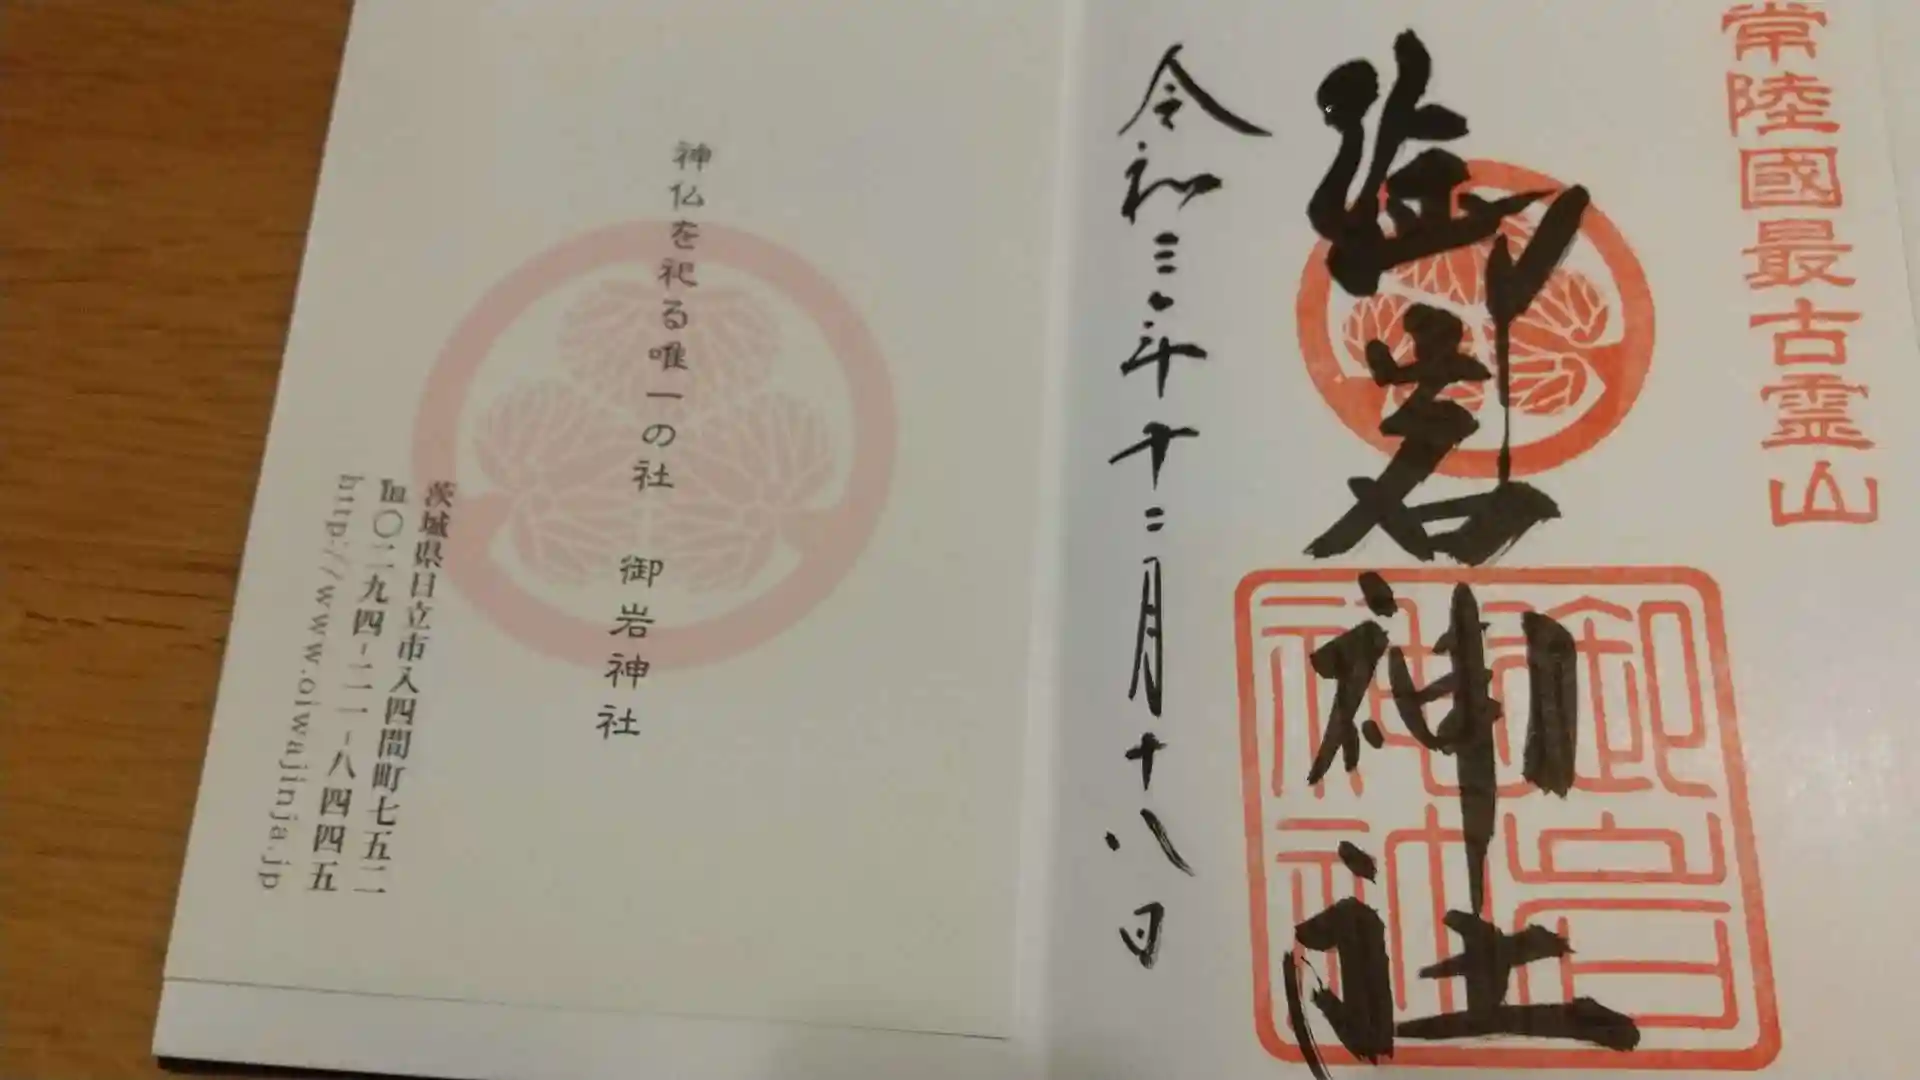 常陸國最古霊山
御岩神社
御岩神社
令和三年十二月十八日
神仏を祀る唯一の社 御岩神社
茨城県日立市入四間町七五二
℡〇二九四-二一-八四四五
http://www.oiwajinja.jp